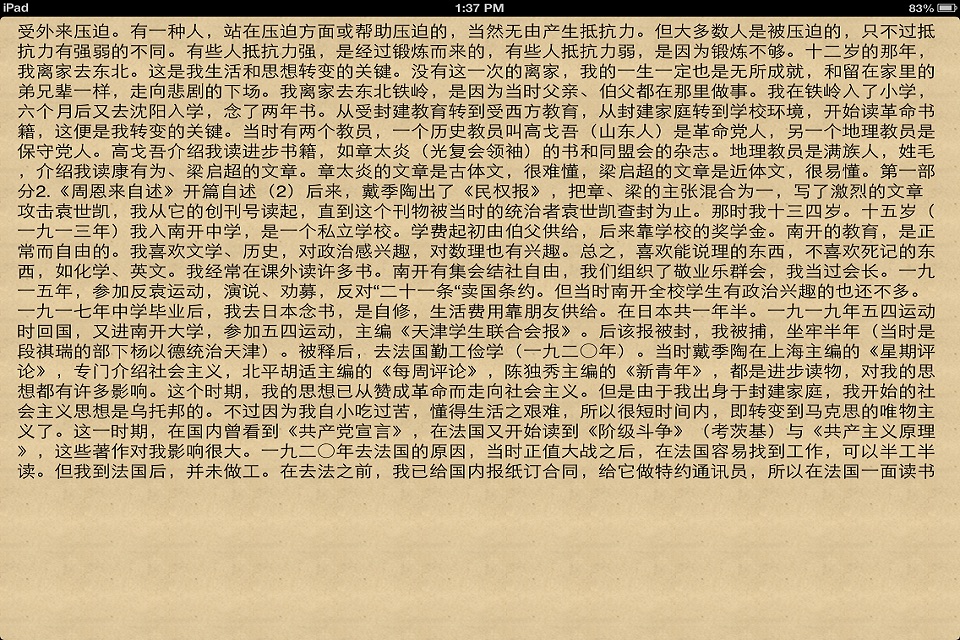 iPad
1:37 PM
83%
受外来压迫。有一种人，站在压迫方面或帮助压迫的，当然无由产生抵抗力。但大多数人是被压迫的，只不过抵
抗力有强弱的不同。有些人抵抗力强，是经过锻炼而来的，有些人抵抗力弱，是因为锻炼不够。十二岁的那年，
我离家去东北。这是我生活和思想转变的关键。没有这一次的离家，我的一生一定也是无所成就，和留在家里的
弟兄辈一样，走向悲剧的下场。我离家去东北铁岭，是因为当时父亲、伯父都在那里做事。我在铁岭入了小学，
六个月后又去沈阳入学，念了两年书。从受封建教育转到受西方教育，从封建家庭转到学校环境，开始读革命书
籍，这便是我转变的关键。当时有两个教员，一个历史教员叫高戈吾（山东人）是革命党人，另一个地理教员是
保守党人。高戈吾介绍我读进步书籍，如章太炎（光复会领袖）的书和同盟会的杂志。地理教员是满族人，姓毛
，介绍我读康有为、梁启超的文章。章太炎的文章是古体文，很难懂，梁启超的文章是近体文，很易懂。第一部
分2.《周恩来自述》开篇自述（2）后来，戴季陶出了《民权报》，把章、梁的主张混合为一，写了激烈的文章
攻击袁世凯，我从它的创刊号读起，直到这个刊物被当时的统治者袁世凯查封为止。那时我十三四岁。十五岁（
一九一三年）我入南开中学，是一个私立学校。学费起初由伯父供给，后来靠学校的奖学金。南开的教育，是正
常而自由的。我喜欢文学、历史，对政治感兴趣，对数理也有兴趣。总之，喜欢能说理的东西，不喜欢死记的东
西，如化学、英文。我经常在课外读许多书。南开有集会结社自由，我们组织了敬业乐群会，我当过会长。一九
一五年，参加反袁运动，演说、劝募，反对“二十一条“卖国条约。但当时南开全校学生有政治兴趣的也还不多。
一九一七年中学毕业后，我去日本念书，是自修，生活费用靠朋友供给。在日本共一年半。一九一九年五四运动
时回国，又进南开大学，参加五四运动，主编《天津学生联合会报》。后该报被封，我被捕，坐牢半年（当时是
段祺瑞的部下杨以德统治天津）。被释后，去法国勤工俭学（一九二〇年）。当时戴季陶在上海主编的《星期评
论》，专门介绍社会主义，北平胡适主编的《每周评论》，陈独秀主编的《新青年》，都是进步读物，对我的思
想都有许多影响。这个时期，我的思想已从赞成革命而走向社会主义。但是由于我出身于封建家庭，我开始的社
会主义思想是乌托邦的。不过因为我自小吃过苦，懂得生活之艰难，所以很短时间内，即转变到马克思的唯物主
义了。这一时期，在国内曾看到《共产党宣言》，在法国又开始读到《阶级斗争》（考茨基）与《共产主义原理
》，这些著作对我影响很大。一九二〇年去法国的原因，当时正值大战之后，在法国容易找到工作，可以半工半
读。但我到法国后，并未做工。在去法之前，我已给国内报纸订合同，给它做特约通讯员，所以在法国一面读书